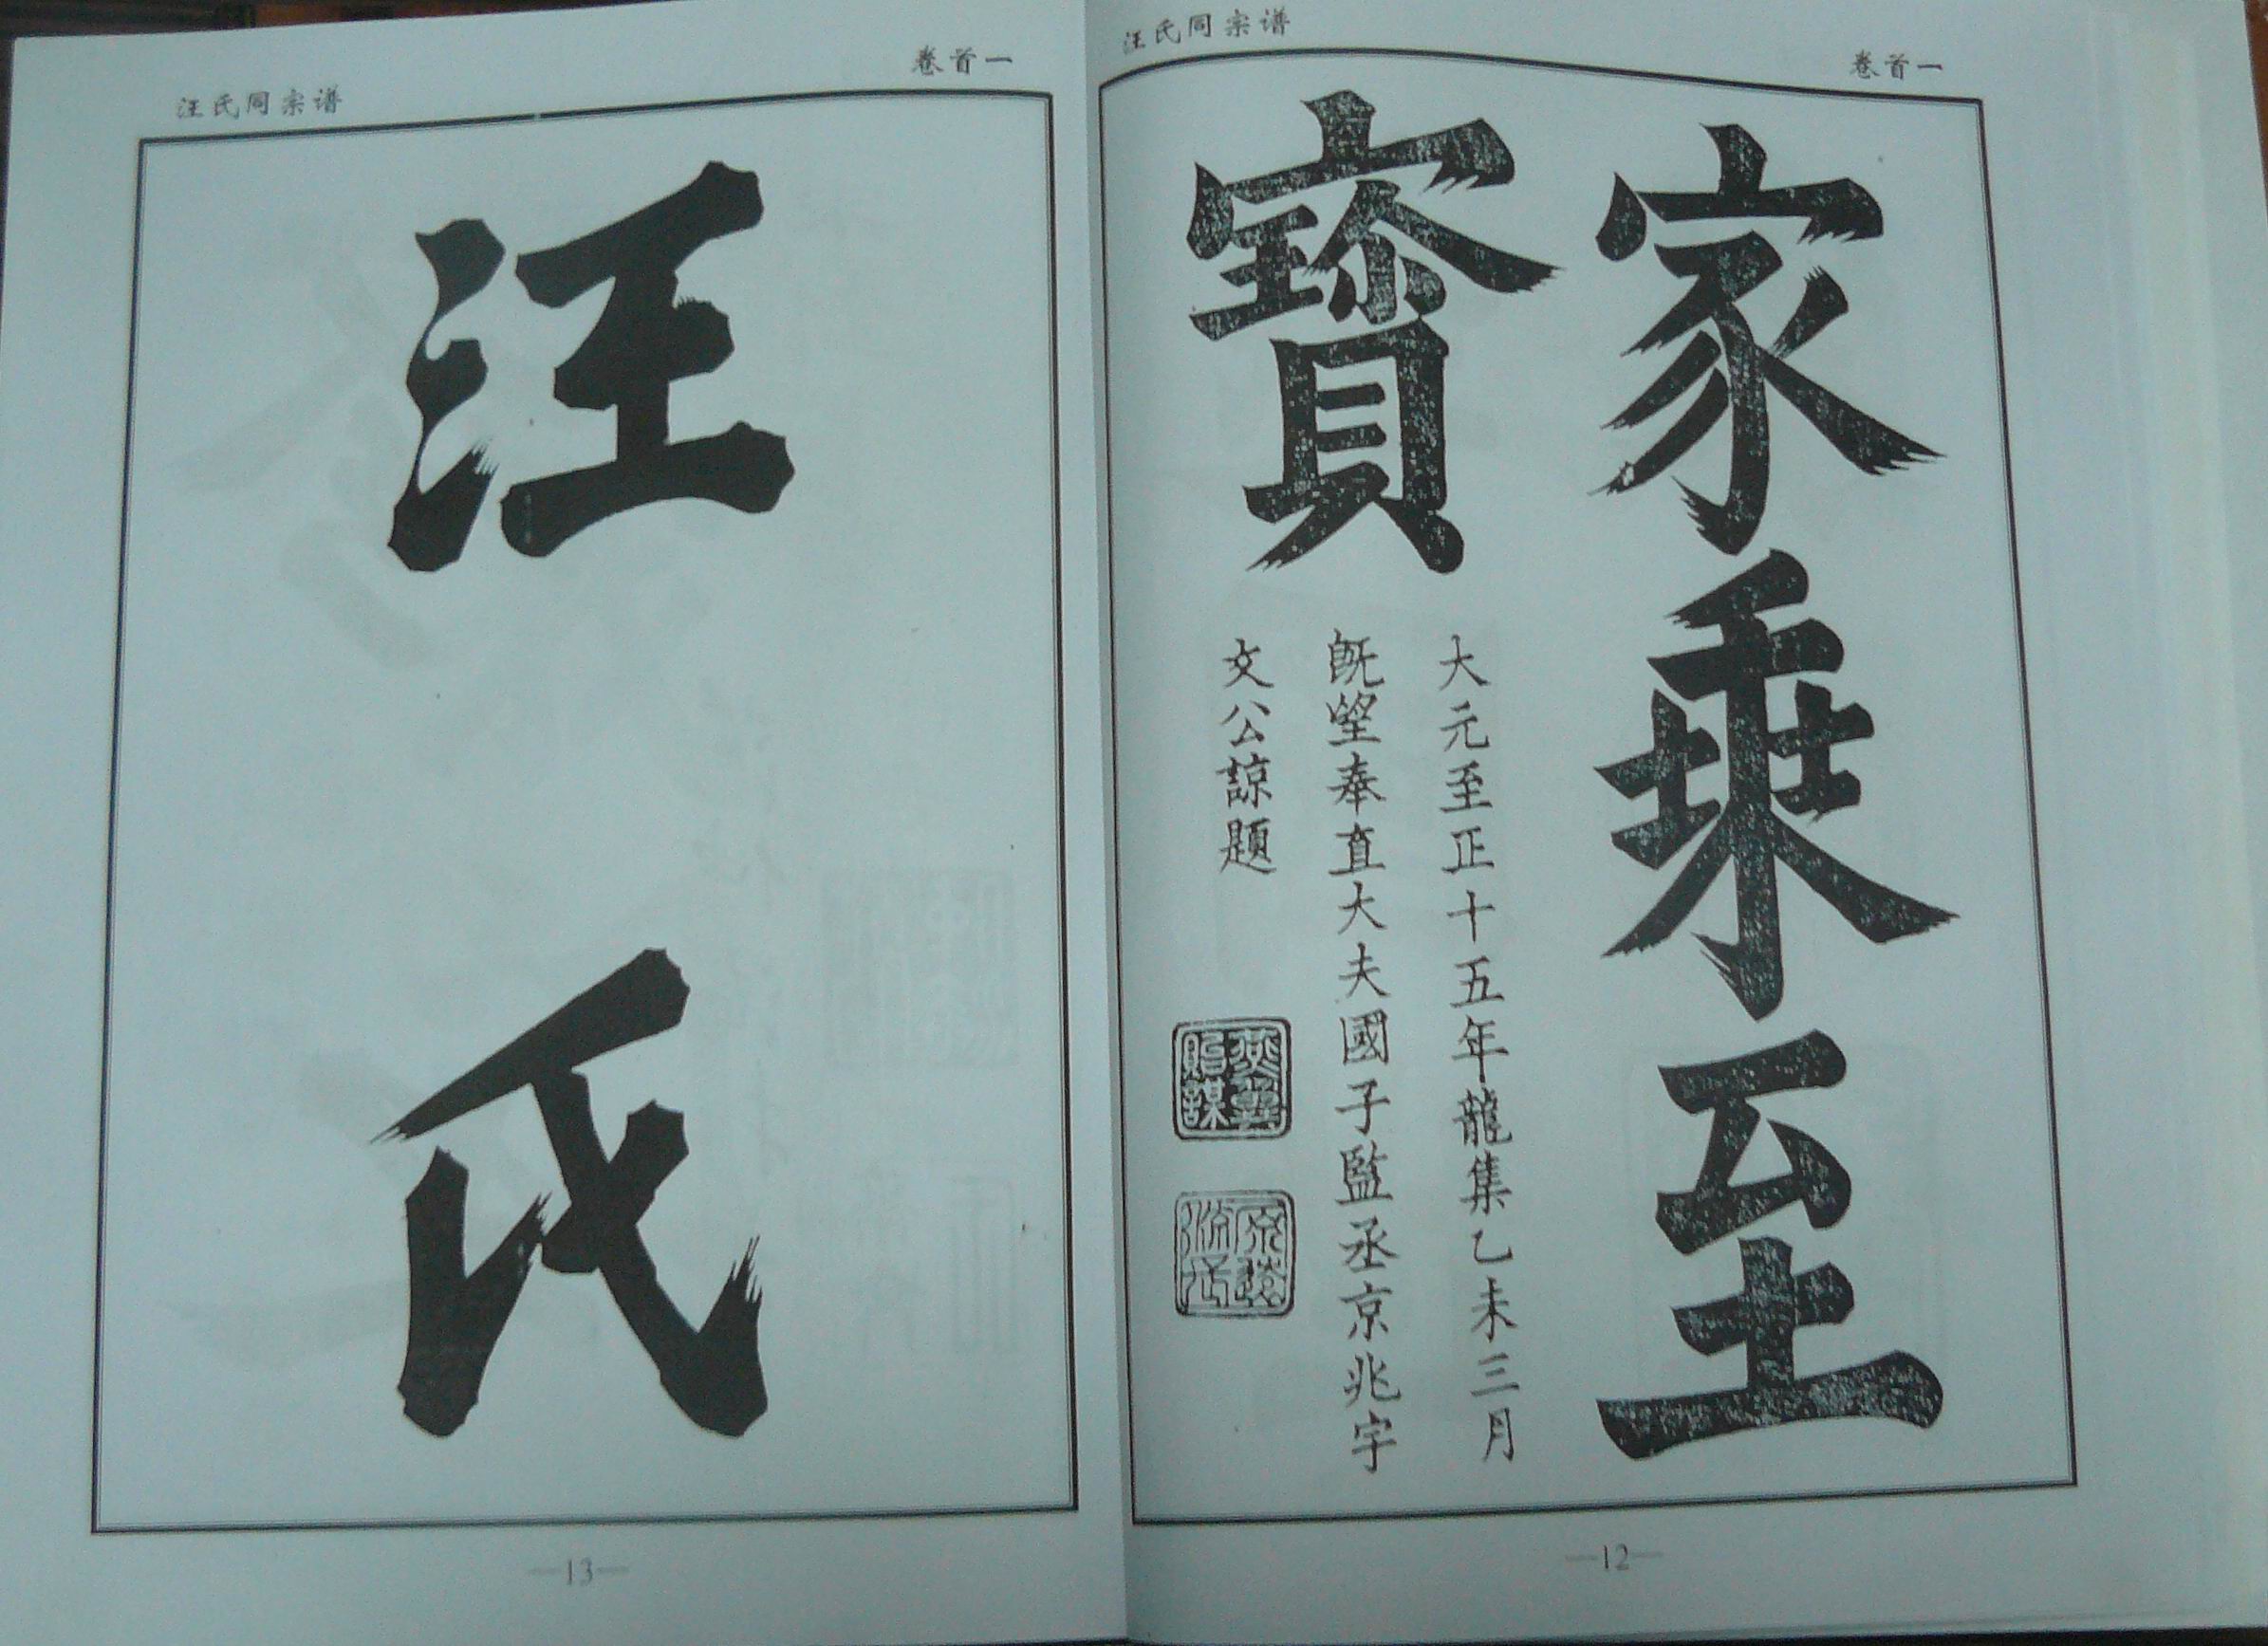 汪氏同宗谱
卷首一
家乘至
寳
大元至正十五年龍集乙未三月
旣望奉直大夫國子監丞京兆宇
文公諒題
燕翼
貽謀
—12—
汪氏同宗谱
卷首一
汪
氏
—13—